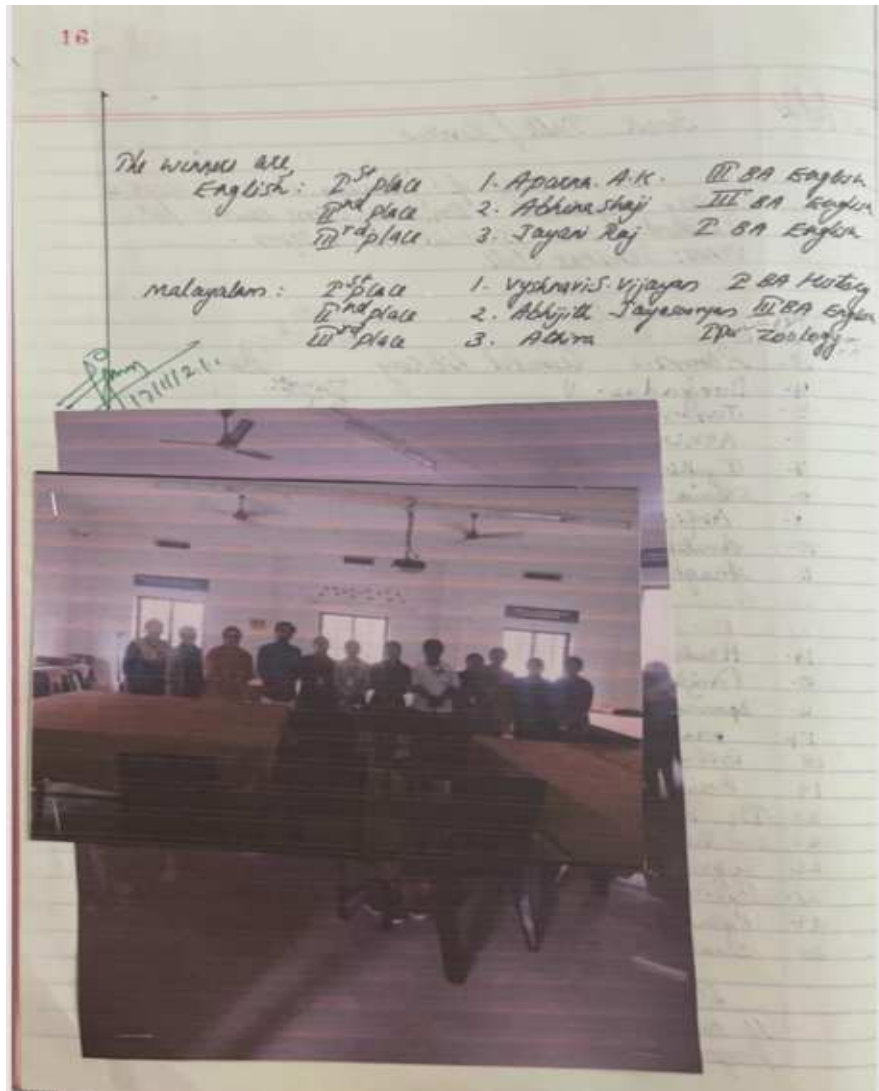 16
The winners are,
English: Ist place 1. Aparna. A.K. III BA English
IInd place 2. Abhina Shaji III BA English
IIIrd place. 3. Jayani Raj I BA English
Malayalam: Ist place 1. Vyshnavi S. Vijayan I BA History
IInd place 2. Abhijith Jayasooryan III BA English
IIIrd place 3. Athira Zoology